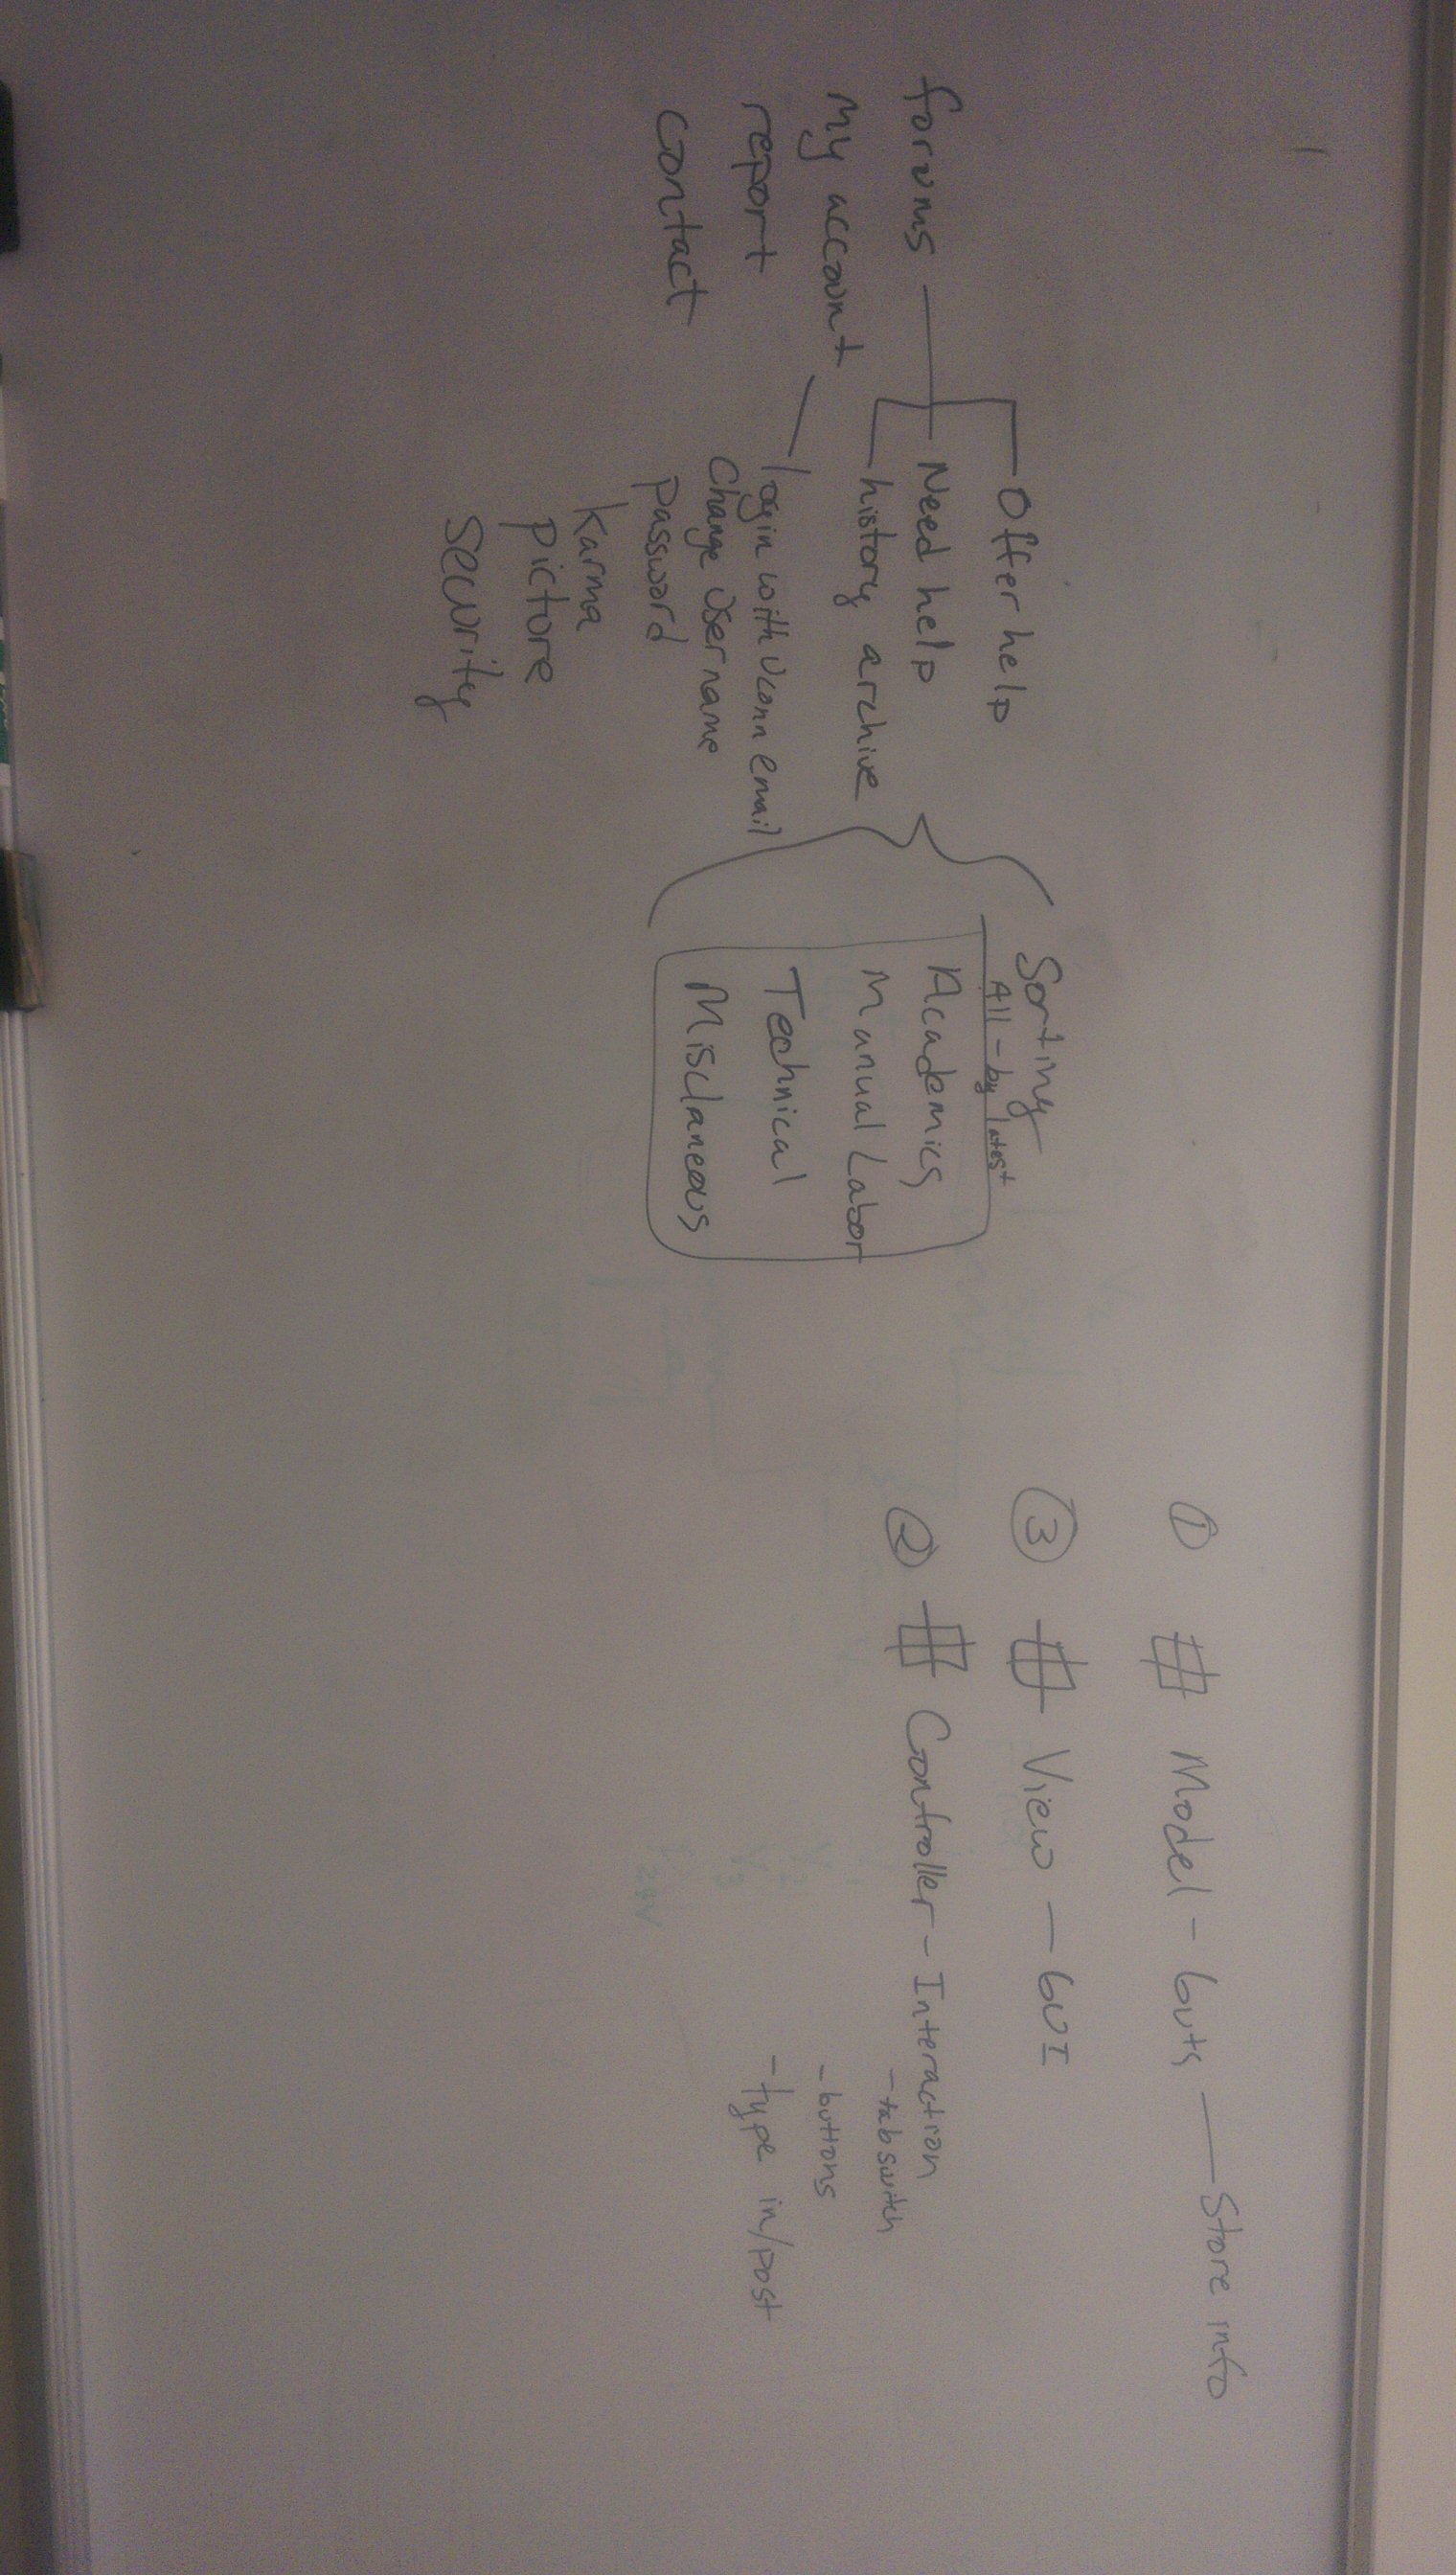 forums
my account
report
contact
Offer help
Need help
history archive
login with Uconn email
Change Username
password
Karma
picture
Security
Sorting
All - by latest
Academics
Manual Labor
Technical
Misclaneous
① # Model - Guts — Store info
③ # View — GUI
② # Controller - Interaction
- tab switch
- buttons
- type in/post